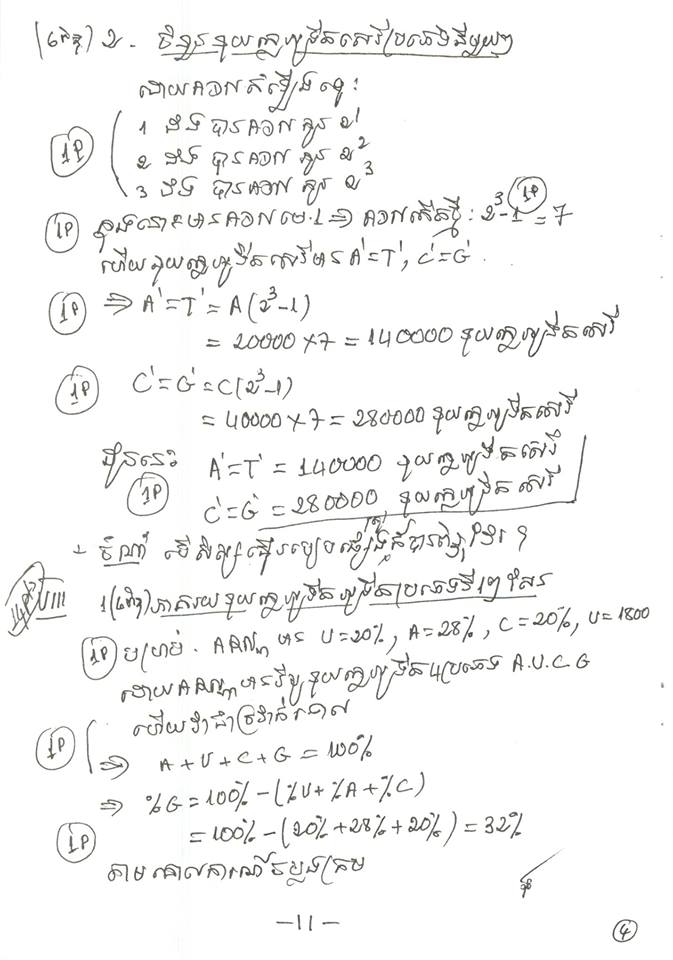 (៤ពិន្ទុ) ២. ចំនួននុយក្លេអូទីតសេរីប្រភេទនីមួយៗ
ដោយ ADN តំឡើងទ្វេ :
1P ( 1 ដង បាន ADN កូន 2¹
2 ដង បាន ADN កូន 2²
3 ដង បាន ADN កូន 2³
1P ក្នុងនោះមាន ADN មេ 1 ⇒ ADN កើតថ្មី : 2³-1 = 7 1P
ហើយនុយក្លេអូទីតសេរីមាន A'=T', C'=G'.
1P ⇒ A'=T' = A(2³-1)
= 20000×7 = 140000 នុយក្លេអូទីតសេរី
1P C'=G'=C(2³-1)
= 40000×7 = 280000 នុយក្លេអូទីតសេរី
ដូចនេះ A'=T' = 140000 នុយក្លេអូទីតសេរី
1P C'=G' = 280000 នុយក្លេអូទីតសេរី
+ ចំណាំ បើសិស្សធ្វើរបៀបផ្សេងត្រូវក៏បានពិន្ទុដែរ។
VIII 1(៤ពិន្ទុ) ភាគរយនុយក្លេអូទីតប្រភេទនីមួយៗនៃ
1P បម្រាប់ . ARNm មាន U=20%, A=28%, C=20%, U=1800
ដោយ ARNm មាននុយក្លេអូទីត 4 ប្រភេទ A.U.C.G
1P ហើយវាជាច្រវាក់ទោល
⇒ A+U+C+G = 100%
⇒ %G = 100% - (%U+%A+%C)
1P = 100% - (20%+28%+20%) = 32%
តាមគោលការណ៍ចម្លងក្រម
-11-
4